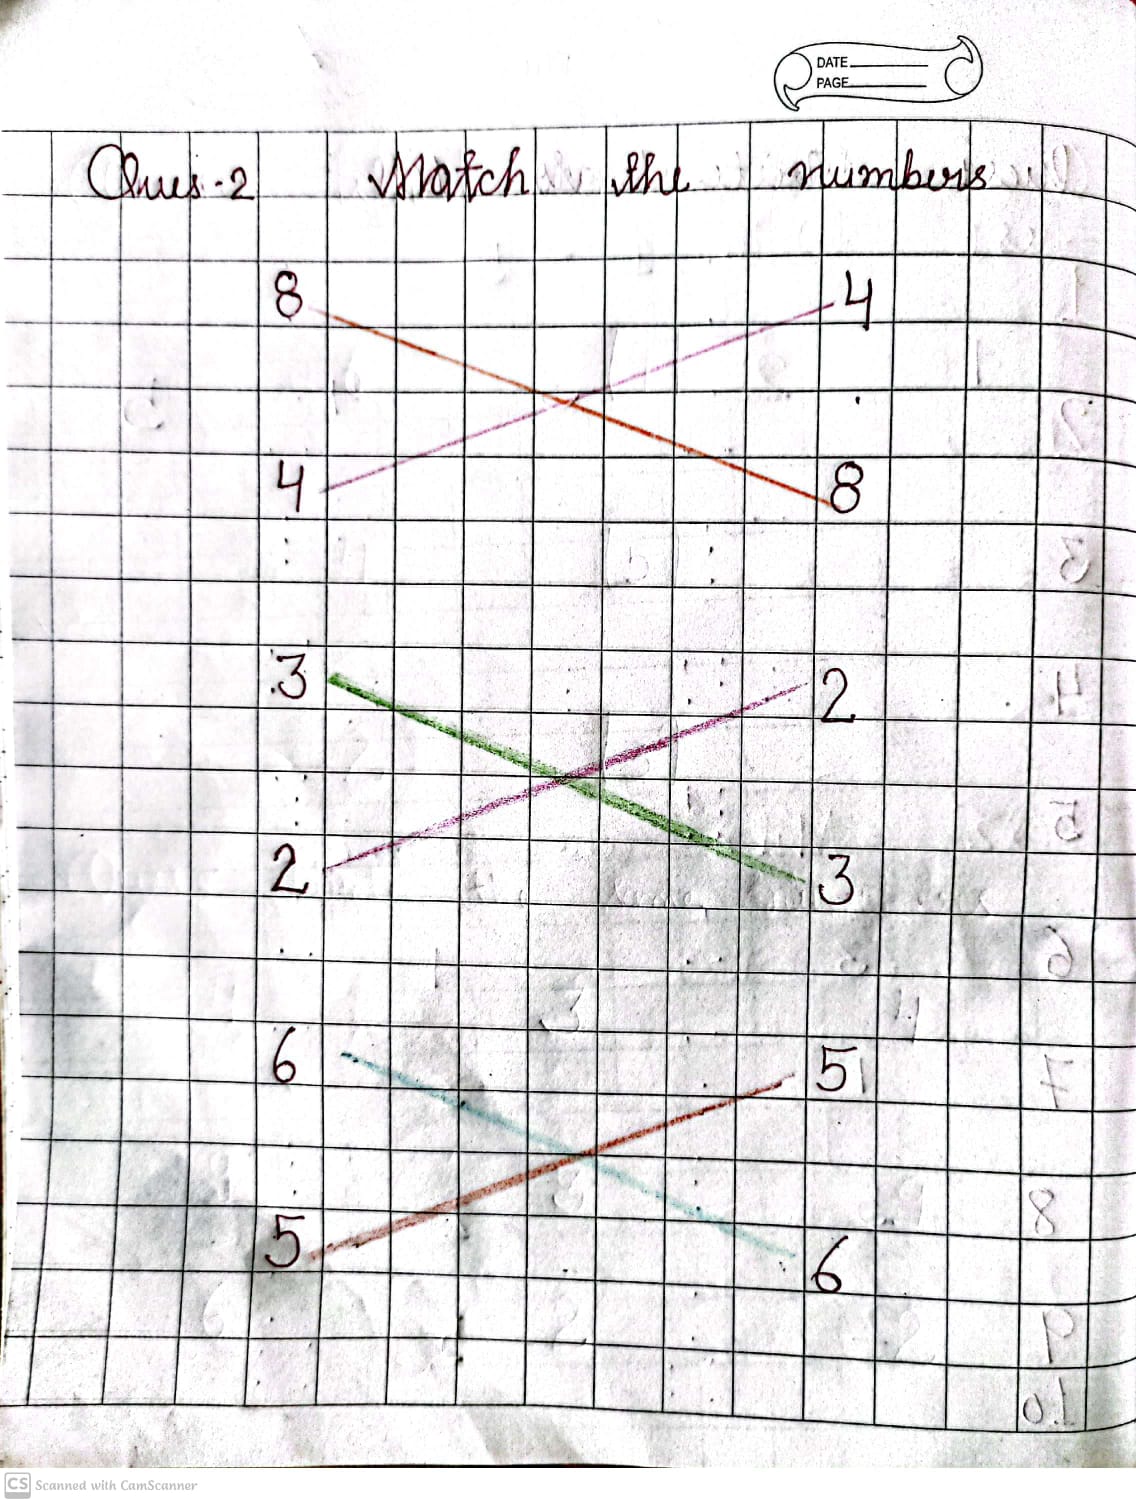 DATE
PAGE
Ques-2 Match the numbers
8 4
4 8
3 2
2 3
6 5
5 6
CS Scanned with CamScanner